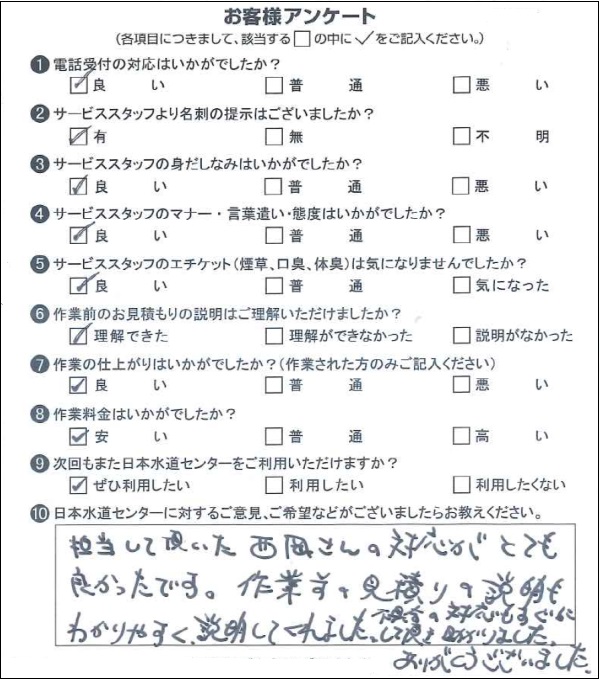 お客様アンケート
(各項目につきまして、該当する□の中に✓をご記入ください。)
❶ 電話受付の対応はいかがでしたか?
☑ 良い □ 普通 □ 悪い
❷ サービススタッフより名刺の提示はございましたか?
☑ 有 □ 無 □ 不明
❸ サービススタッフの身だしなみはいかがでしたか?
☑ 良い □ 普通 □ 悪い
❹ サービススタッフのマナー・言葉遣い・態度はいかがでしたか?
☑ 良い □ 普通 □ 悪い
❺ サービススタッフのエチケット(煙草、口臭、体臭)は気になりませんでしたか?
☑ 良い □ 普通 □ 気になった
❻ 作業前のお見積もりの説明はご理解いただけましたか?
☑ 理解できた □ 理解ができなかった □ 説明がなかった
❼ 作業の仕上がりはいかがでしたか?(作業された方のみご記入ください)
☑ 良い □ 普通 □ 悪い
❽ 作業料金はいかがでしたか?
☑ 安い □ 普通 □ 高い
❾ 次回もまた日本水道センターをご利用いただけますか?
☑ ぜひ利用したい □ 利用したい □ 利用したくない
❿ 日本水道センターに対するご意見、ご希望などがございましたらお教えください。
担当して頂いた 西岡さんの対応がとても
良かったです。作業前の見積りの説明も
わかりやすく、説明してくれました。
の対応もすぐに
して頂き助かりました。
ありがとうございました。